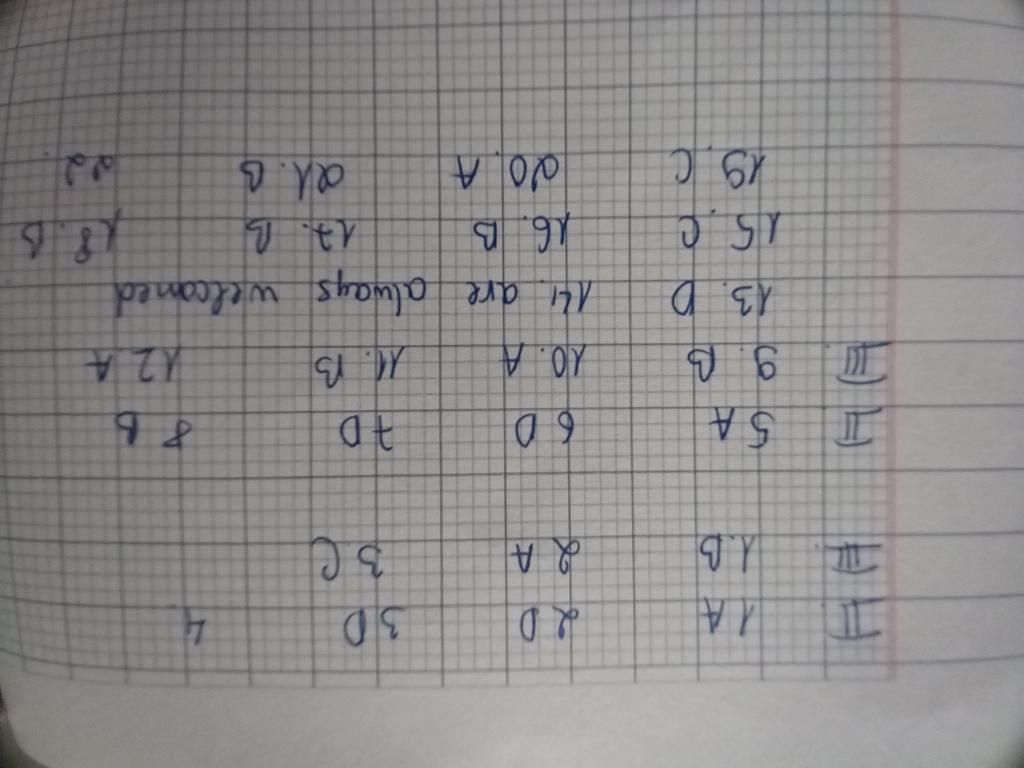 II 1A 2D 3D 4
III 1.B 2A 3C
II 5A 6D 7D 8B
III 9. B 10. A 11. B 12 A
13. D 14. are always welcomed
15. C 16. B 17. B 18. B
19. C 20. A 21. B 22.